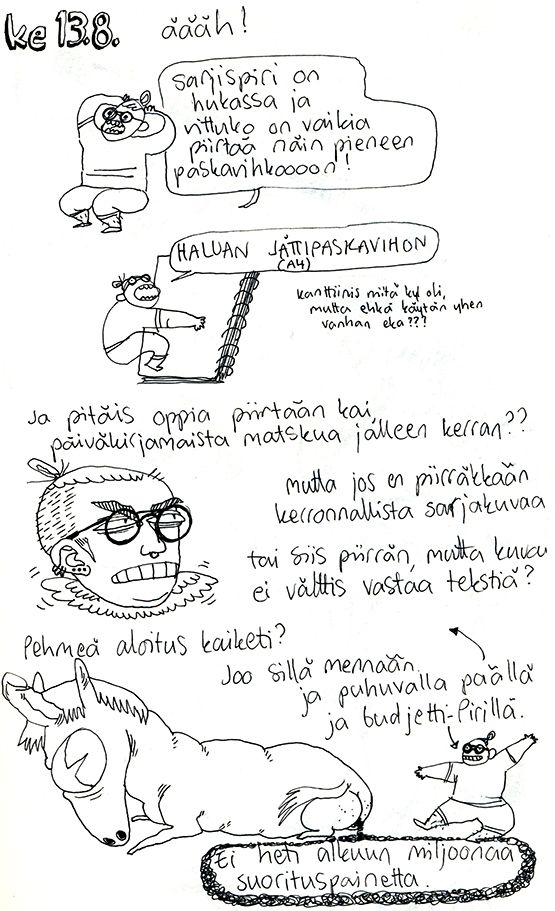 ke 13.8.
äääh!
sarjispiri on
hukassa ja
vittuko on vaikia
piirtää näin pieneen
paskavihkoooon!
HALUAN JÄTTIPASKAVIHON
(A4)
kanttiinis mitä kyl oli,
mutta ehkä käytän yhen
vanhan eka???
Ja pitäis oppia piirtään kai
päiväkirjamaista matskua jälleen kerran??
mutta jos en piirräkkään
kerronnallista sarjakuvaa
tai siis piirrän, mutta kuva
ei välttis vastaa tekstiä?
Pehmeä aloitus kaiketi?
Joo sillä mennään.
ja puhuvalla päällä
ja budjetti-Pirillä.
Ei heti alkuun miljoonaa
suorituspainetta.